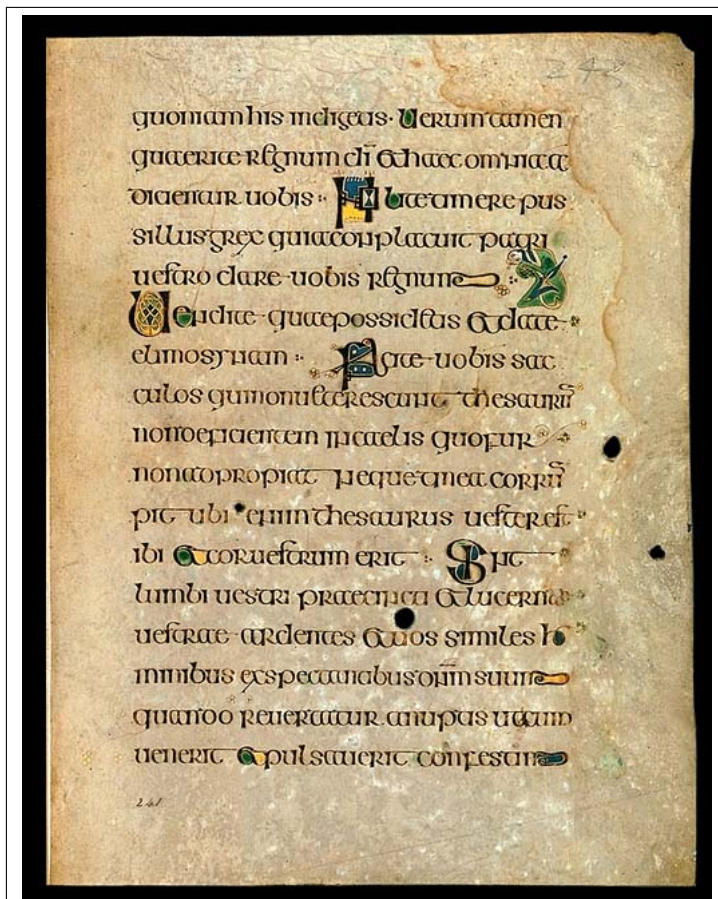 248
quoniam his indigetis · Uerum tamen
querite regnum dī et haec omnia a
dicientur uobis : Nolite timere pus
sillus grex quia conplacuit patri
uestro dare uobis regnum
Uendite quae possidetis et date
elimosynam : Facite uobis sac
culos qui non ueterescunt thesaurū
non deficientem in caelis quo fur
non adpropiat neque tinea corrū
pit ubi enim thesaurus uester est
ibi et cor uestrum erit : Sint
lumbi uestri praecincti et lucernae
uestrae ardentes et uos similes ho
minibus exspectantibus dn̄m suum
quando reuertatur a nuptis ut cum
uenerit et pulsauerit confestim
241